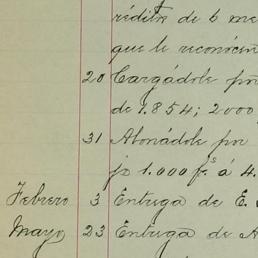 réditos de 6 me
que le reconocen
20 Cargádole por
de 1.854; 2000
31 Abonándole por
jo 1.000 fs á 4.
Febrero 3 Entrega de E.
Mayo 23 Entrega de A